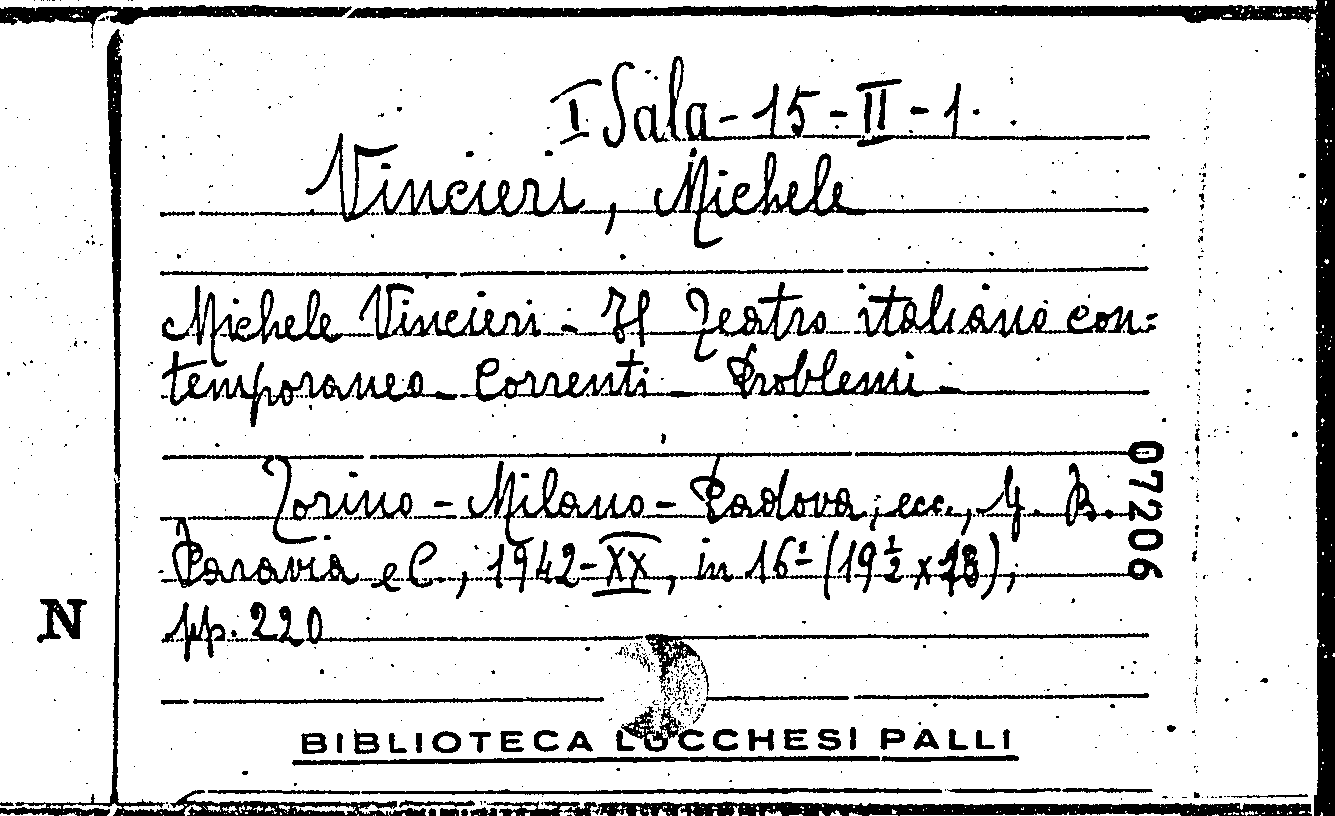 I Sala - 15 - II - 1.
Vincieri, Michele
Michele Vincieri - Il Teatro italiano con=
temporaneo - Correnti - Problemi -
Torino - Milano - Padova, ecc., G. B.
Paravia e C., 1942-XX, in 16° (19½ x 13),
pp. 220
07206
N
BIBLIOTECA LUCCHESI PALLI